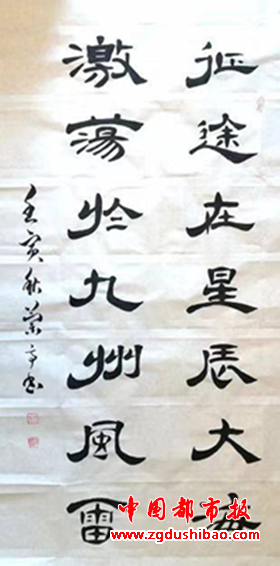 征途在星辰大海
激蕩於九州風雷
壬寅秋蘭亭书
中国都市报
www.zgdushibao.com